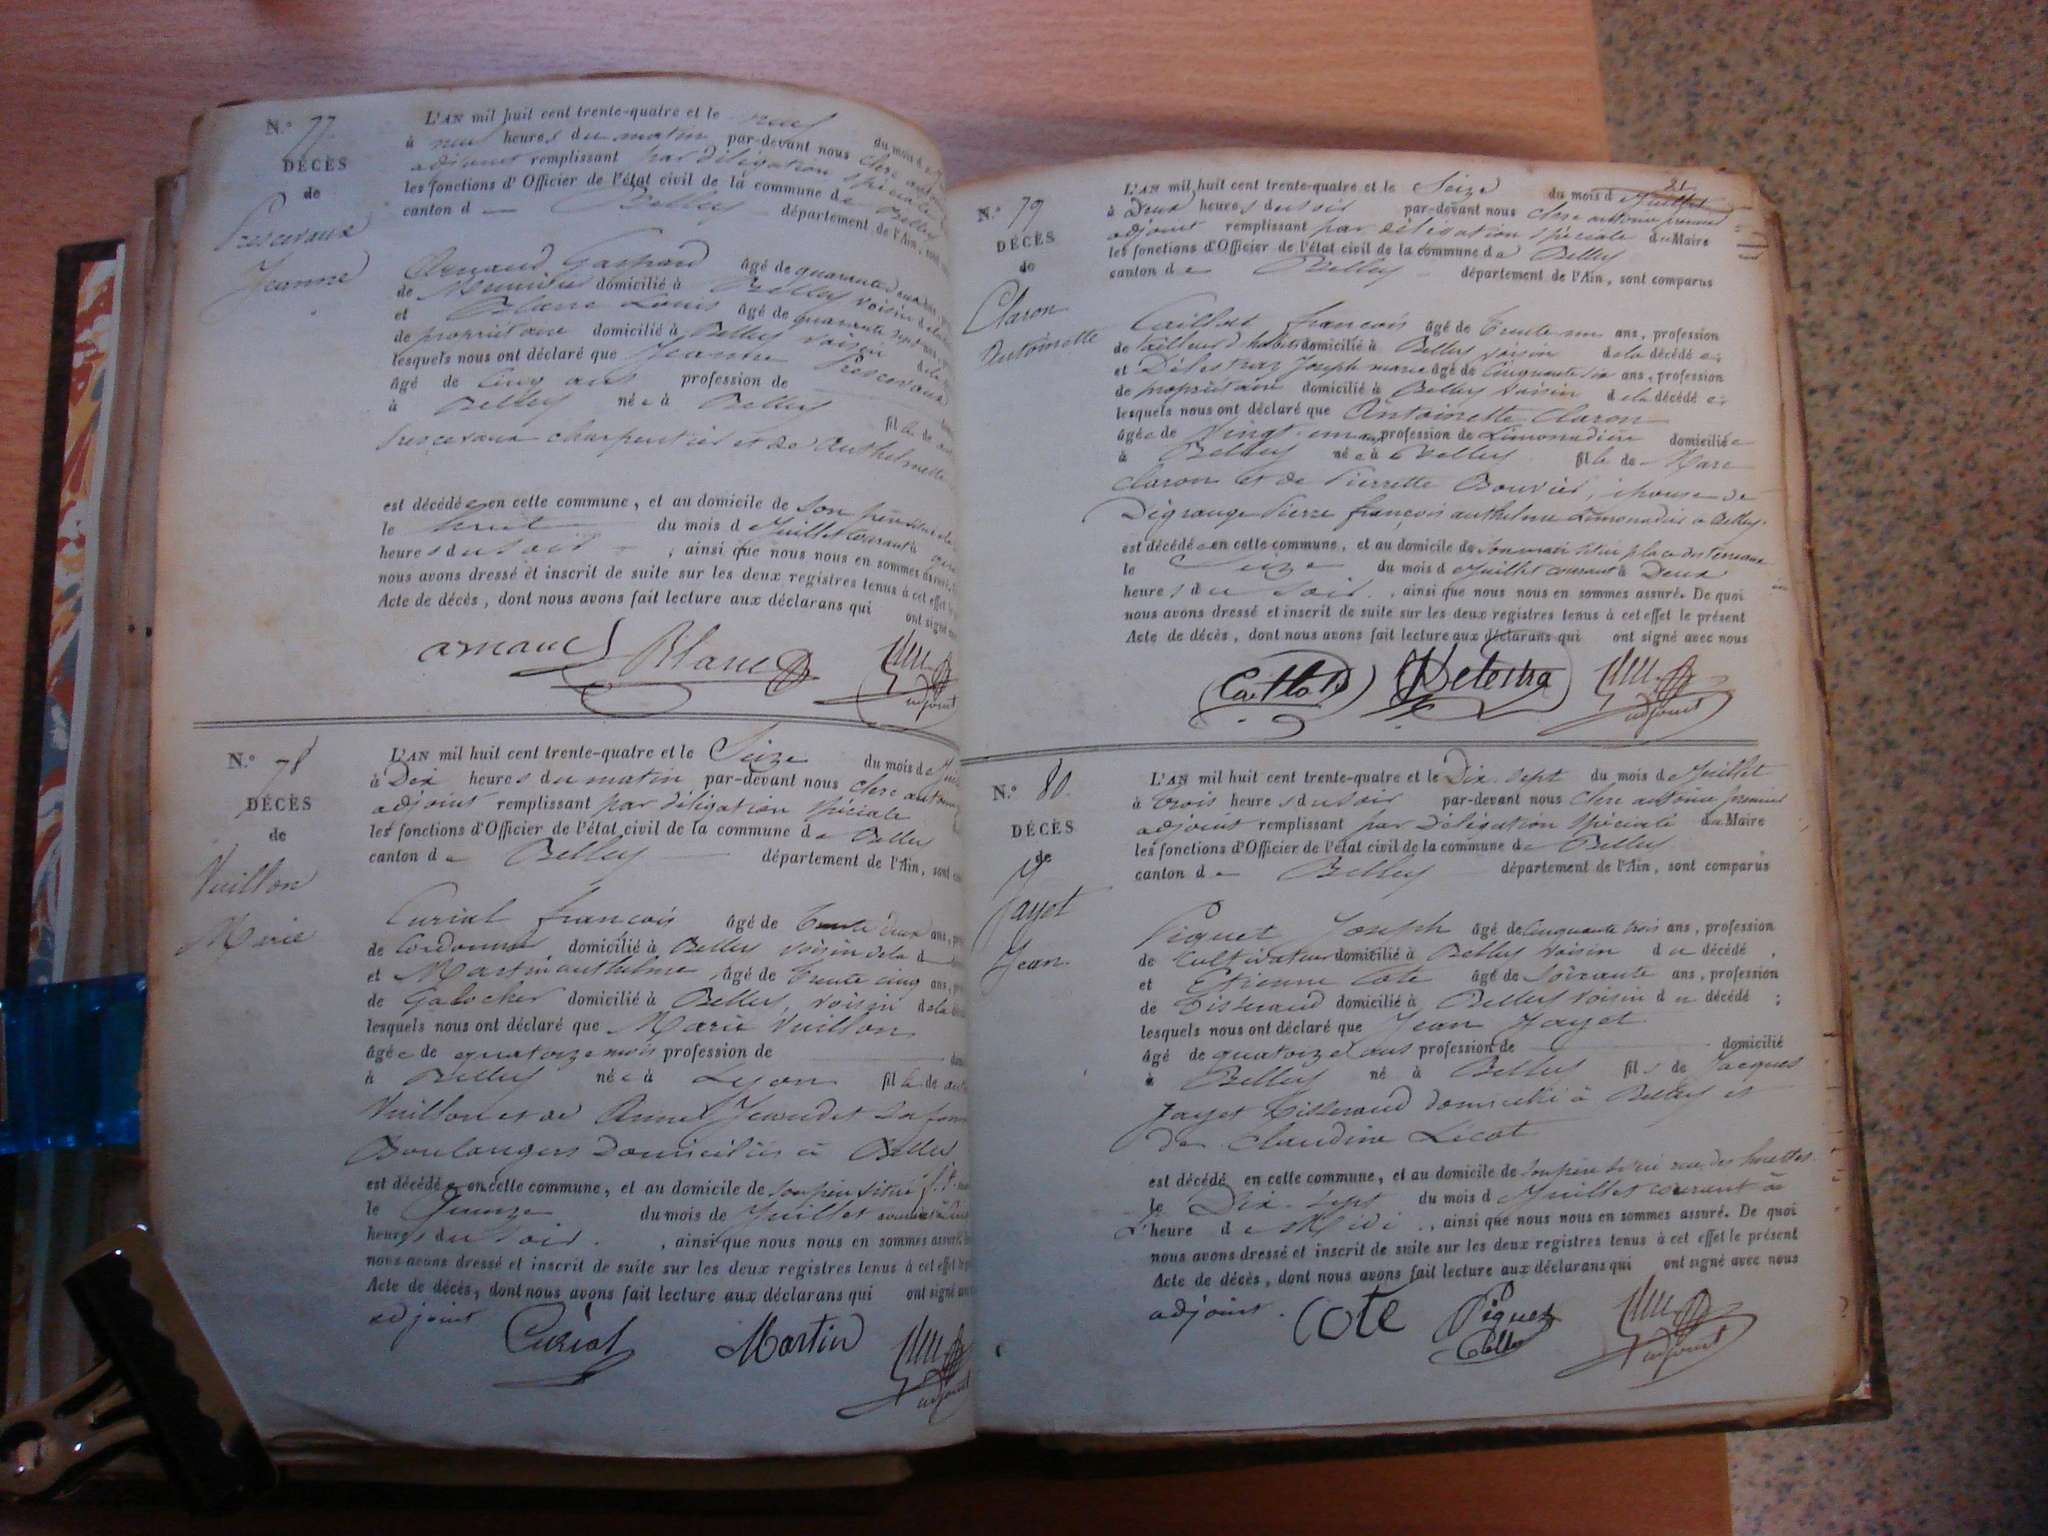 N.° 77.
DÉCÈS
de
Jeanne
L'AN mil huit cent trente-quatre et le neuf du mois d
à neuf heures du matin par-devant nous Clerc
adjoint remplissant par délégation spéciale
les fonctions d'Officier de l'état civil de la commune de Belley
canton de Belley département de l'Ain, sont
Arnaud Gaspard âgé de quarante
de domicilié à Belley voisin
et Blanc Louis âgé de quarante
de propriétaire domicilié à Belley voisin
lesquels nous ont déclaré que Jeanne
âgé de Cinq ans profession de
à Belley née à Belley fille de
charpentier et de Anthelmette
est décédée en cette commune, et au domicile de son père
le huit du mois de Juillet courant à
heures du soir, ainsi que nous nous en sommes assuré.
nous avons dressé et inscrit de suite sur les deux registres tenus à cet effet
Acte de décès, dont nous avons fait lecture aux déclarans qui ont signé
arnaud Blanc adjoint
N.° 78
DÉCÈS
de
Vuillon
Marie
L'AN mil huit cent trente-quatre et le Seize du mois de
à Dix heures du matin par-devant nous Clerc antoine
adjoint remplissant par délégation spéciale
les fonctions d'Officier de l'état civil de la commune de Belley
canton de Belley département de l'Ain, sont
Curial françois âgé de ans,
de Cordonnier domicilié à Belley voisin de la
et Martin anthelme âgé de trente cinq ans,
de Galocher domicilié à Belley, voisin de la
lesquels nous ont déclaré que Marie Vuillon
âgée de quatorze mois profession de
à Belley née à Lyon fille de
Vuillon et de Anne
Boulangers Domiciliés à Belley
est décédée en cette commune, et au domicile de son père situé
le Quinze du mois de Juillet courant à
heures du soir, ainsi que nous nous en sommes assuré.
nous avons dressé et inscrit de suite sur les deux registres tenus à cet effet
Acte de décès, dont nous avons fait lecture aux déclarans qui ont signé
adjoint
Curial Martin adjoint
21
N.° 79
DÉCÈS
de
Claron
Antoinette
L'AN mil huit cent trente-quatre et le Seize du mois de Juillet
à Deux heures du soir par-devant nous Clerc antoine premier
adjoint remplissant par délégation spéciale du Maire
les fonctions d'Officier de l'état civil de la commune de Belley
canton de Belley département de l'Ain, sont comparus
Caillot françois âgé de Trente un ans, profession
de tailleur d'habits domicilié à Belley voisin de la décédée;
et Délestraz Joseph marie âgé de Cinquante six ans, profession
de propriétaire domicilié à Belley Voisin de la décédée;
lesquels nous ont déclaré que Antoinette Claron
âgée de Vingt-un ans profession de Limonadière domiciliée
à Belley née à Belley fille de Marc
Claron et de Pierrette Bouvier, épouse de
Dégrange Pierre françois anthelme Limonadier à Belley.
est décédée en cette commune, et au domicile de son mari situé place des terreaux
le Seize du mois de Juillet courant à Deux
heures du soir, ainsi que nous nous en sommes assuré. De quoi
nous avons dressé et inscrit de suite sur les deux registres tenus à cet effet le présent
Acte de décès, dont nous avons fait lecture aux déclarans qui ont signé avec nous
Caillot Delestra adjoint
N.° 80.
DÉCÈS
de
Jayet
Jean
L'AN mil huit cent trente-quatre et le Dix-sept du mois de Juillet
à trois heures du soir par-devant nous Clerc antoine premier
adjoint remplissant par Délégation spéciale du Maire
les fonctions d'Officier de l'état civil de la commune de Belley
canton de Belley département de l'Ain, sont comparus
Piquet Joseph âgé de Cinquante trois ans, profession
de Cultivateur domicilié à Belley Voisin du décédé,
et Etienne Cote âgé de Soixante ans, profession
de Tisserand domicilié à Belley Voisin du décédé;
lesquels nous ont déclaré que Jean Jayet
âgé de quatorze ans profession de domicilié
à Belley né à Belley fils de Jacques
Jayet Tisserand domicilié à Belley et
de Claudine Lécot
est décédé en cette commune, et au domicile de son père situé rue des
le Dix-sept du mois de Juillet courant à
L'heure de Midi, ainsi que nous nous en sommes assuré. De quoi
nous avons dressé et inscrit de suite sur les deux registres tenus à cet effet le présent
Acte de décès, dont nous avons fait lecture aux déclarans qui ont signé avec nous
adjoint. Cote Piquet adjoint